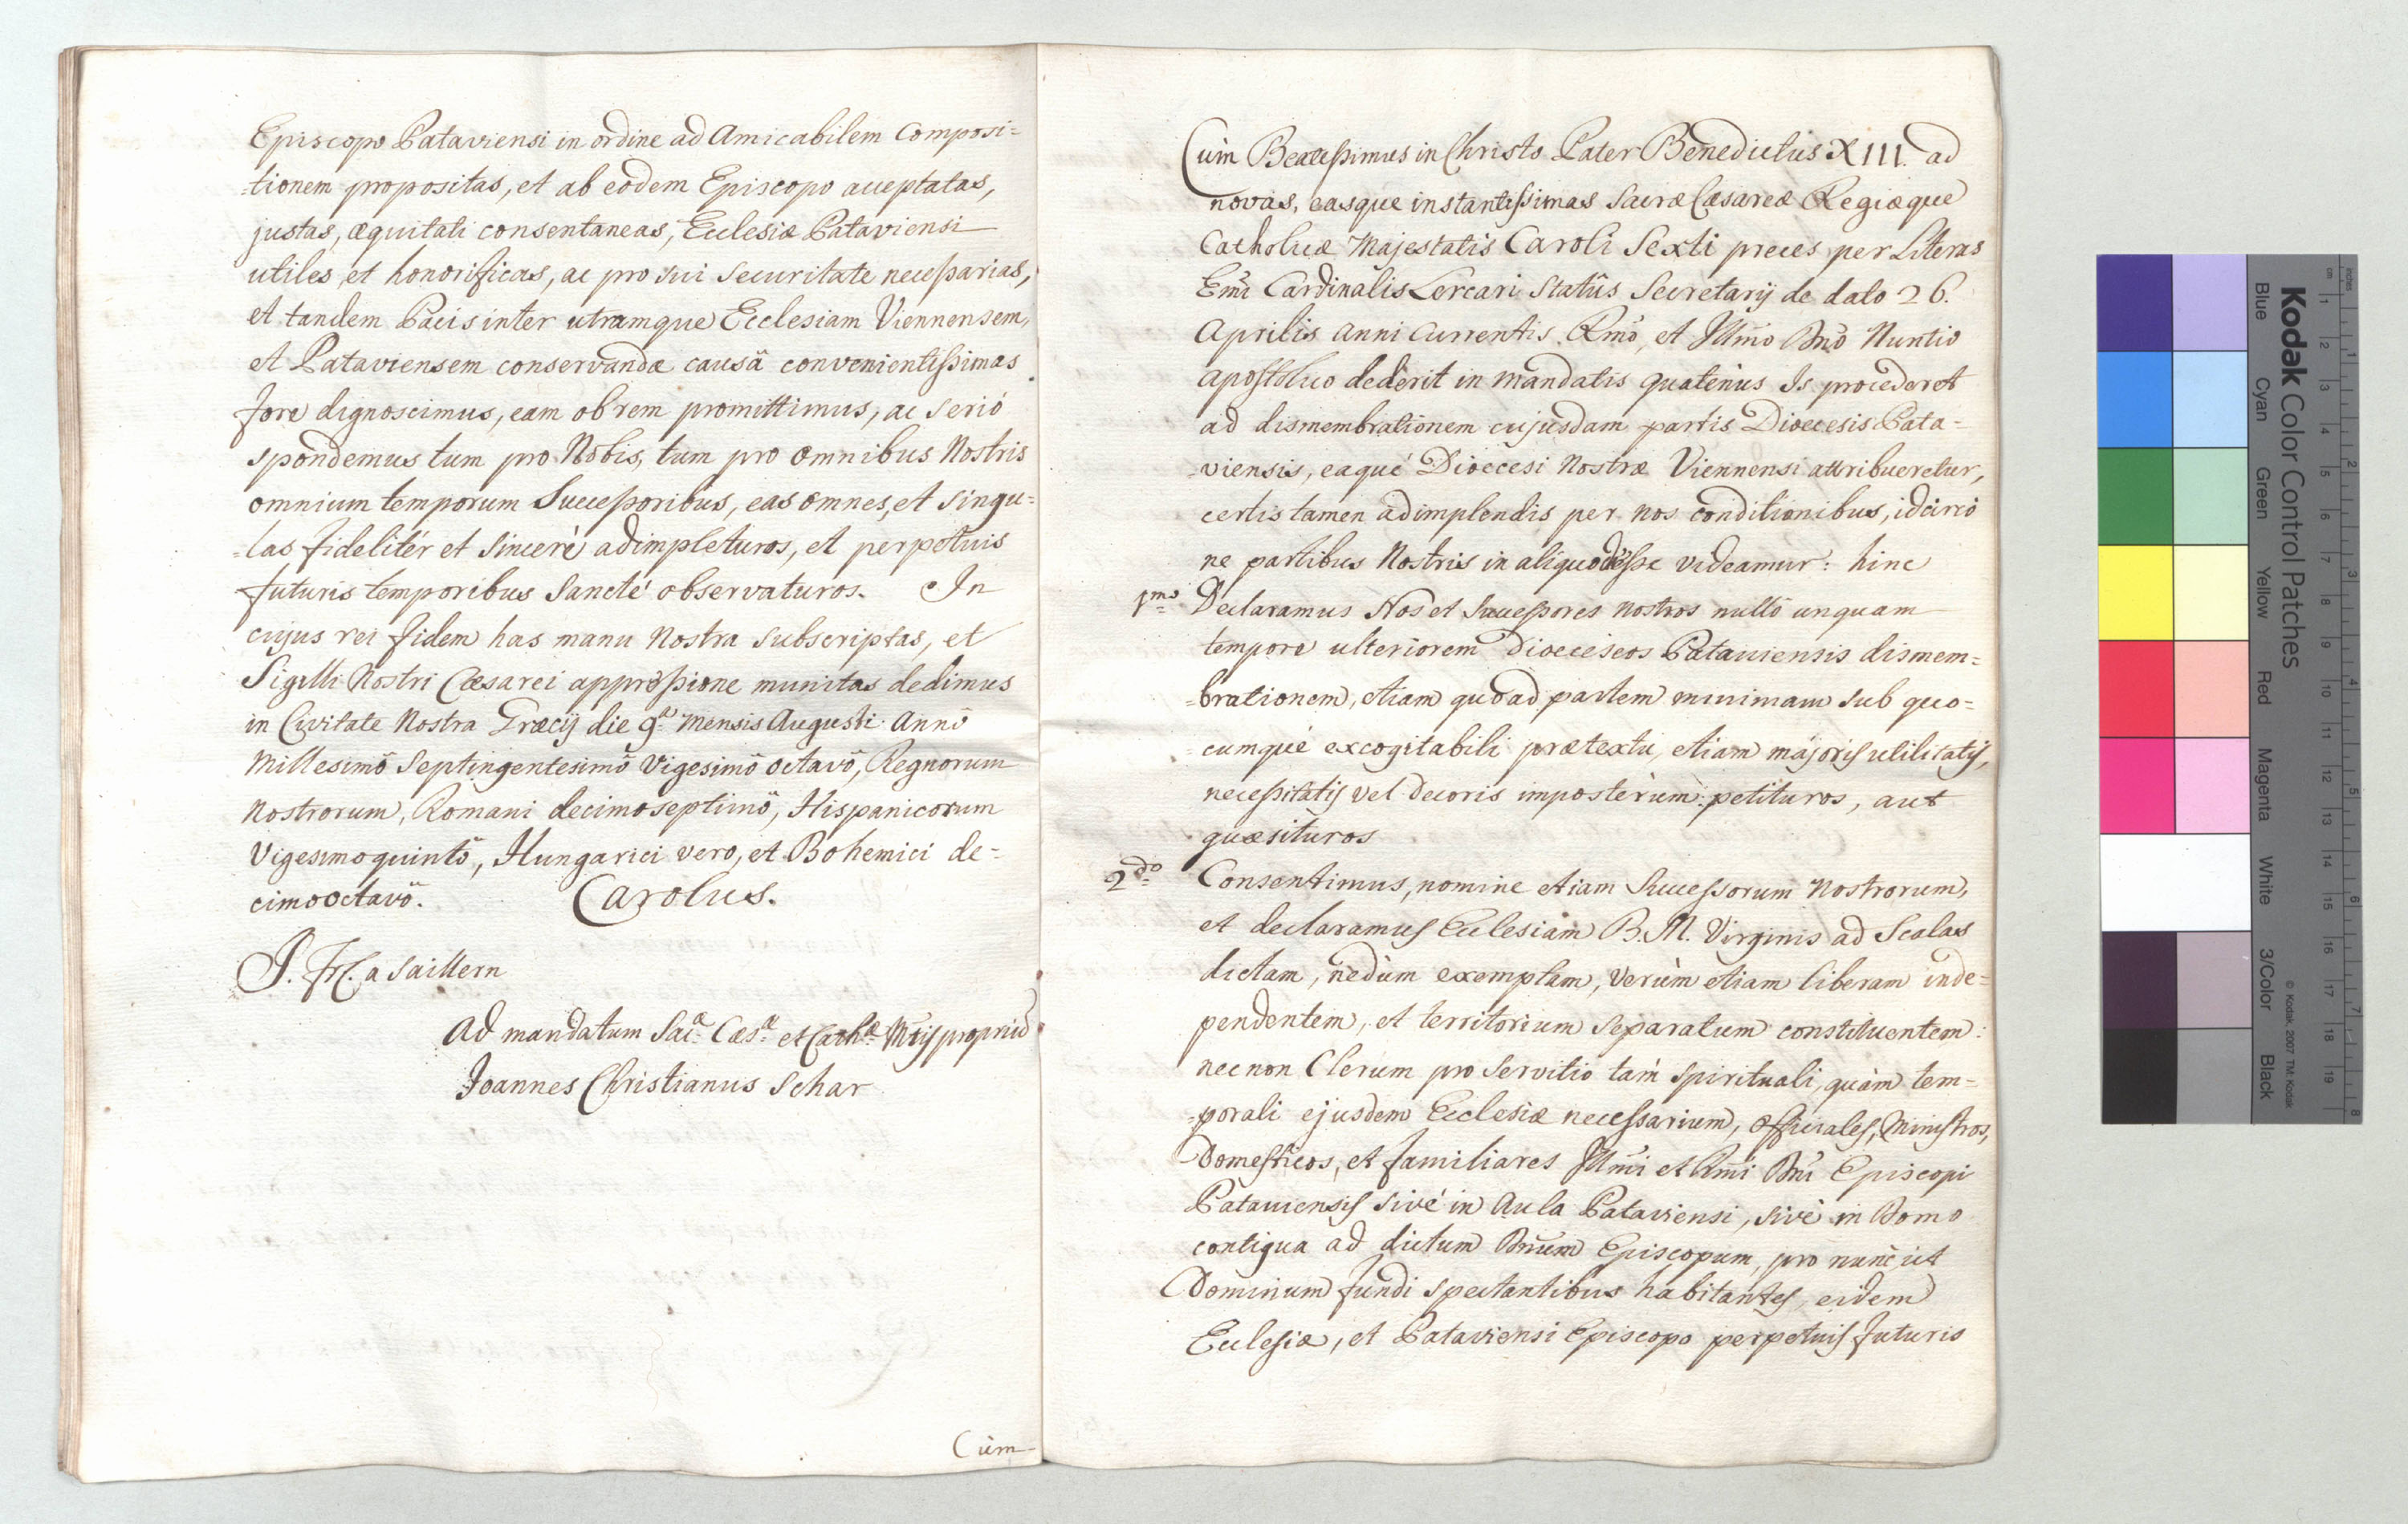 Episcopo Pataviensi in ordine ad Amicabilem Composi=
=tionem propositas, et ab eodem Episcopo acceptatas,
justas, æquitati consentaneas, Ecclesiæ Pataviensi
utiles et honorificas, ac pro sui securitate neceßarias,
et tandem Pacis inter utramque Ecclesiam Viennensem,
et Pataviensem conservandæ causâ convenientißimas
fore dignoscimus, eam obrem promittimus, ac serió
spondemus tum pro Nobis, tum pro omnibus Nostris
omnium temporum Succeßoribus, eas omnes, et singu=
=las fidelitér et sincerè adimpleturos, et perpetuis
futuris temporibus Sancté observaturos. In
cujus rei fidem has manu Nostra subscriptas, et
Sigilli Nostri Cæsarei appreßione munitas dedimus
in Civitate Nostra Græcij die 9ª mensis Augusti Annô
Millesimô Septingentesimô Vigesimô octavô, Regnorum
Nostrorum, Romani decimoseptimô, Hispanicorum
Vigesimoquintô, Hungarici vero, et Bohemici de=
cimooctavô. Carolus.
J. Frl. a Saillern
Ad mandatum Sacª Cæsª et Cathæ Mtis proprium
Joannes Christianus Schar
Cùm
Cùm Beatißimus in Christo Pater Benedictus XIII. ad
novas, easque instantißimas Sacræ Cæsareæ Regiæque
Catholicæ Majestatis Caroli Sexti preces per Literas
Em̄i Cardinalis Lercari Statûs Secretarij de dato 26.
Aprilis anni currentis Rm̄o, et Illm̄o Dn̄o Nuntio
Apostolico dederit in mandatis quatenùs Is procederet
ad dismembrationem cujusdam partis Dioecesis Pata=
=viensis, eaqué Dioecesi Nostræ Viennensi attribueretur,
certis tamen adimplendis per nos conditionibus, idcircó
ne partibus Nostris in aliquo deeße videamur: hinc
1mo Declaramus Nos et Succeßores nostros nullô unquam
tempore ulteriorem Dioeceseos Pataviensis dismem=
=brationem, etiam quoad partem minimam sub quo=
=cumqué excogitabili prætextu, etiam majoris utilitatis,
neceßitatis vel decoris imposterùm petituros, aut
quæsituros
2do Consentimus, nomine etiam Successorum Nostrorum,
et declaramus Ecclesiam B. M. Virginis ad Scalas
dictam, nedùm exemptam, verùm etiam liberam inde=
pendentem, et territorium separatum constituentem:
necnon Clerum pro servitio tàm spirituali, quàm tem=
=porali ejusdem Ecclesiæ necessarium, officiales, Ministros,
Domesticos, et familiares Illm̄i et Rm̄i Dn̄i Episcopi
Pataviensis sivé in Aula Pataviensi, sivè in Domo
contigua ad dictum Dn̄um Episcopum, pro nunc ut
Dominum fundi spectantibus habitantes, eidem
Ecclesiæ, et Pataviensi Episcopo perpetuis futuris
Kodak Color Control Patches
© Kodak, 2007 TM: Kodak
Blue Cyan Green Yellow Red Magenta White 3/Color Black
cm 1 2 3 4 5 6 7 8 9 10 11 12 13 14 15 16 17 18 19
inches 1 2 3 4 5 6 7 8